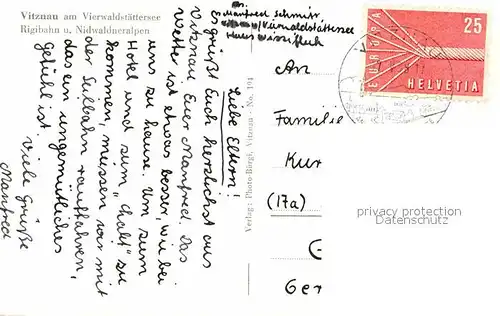 Vitznau am Vierwaldstättersee
Rigibahn u. Nidwaldneralpen
Manfred Schmitt
Vitznau/Vierwaldstättersee
Haus
Liebe Eltern!
grüßt Euch herzlichst aus
Vitznau Euer Manfred. Das
Wetter ist etwas besser, wie bei
uns zu hause. Um zum
Hotel und zum "Chalt" zu
kommen, müssen wir mit
der Seilbahn rauffahren,
das ein ungemütliches
Gefühl ist.
Viele Grüße
Manfred
Verlag: Photo-Bürgi, Vitznau - No. 194
An
Familie
Kur
(17a)
G
Ger
25
EUROPA
HELVETIA
privacy protection
Datenschutz